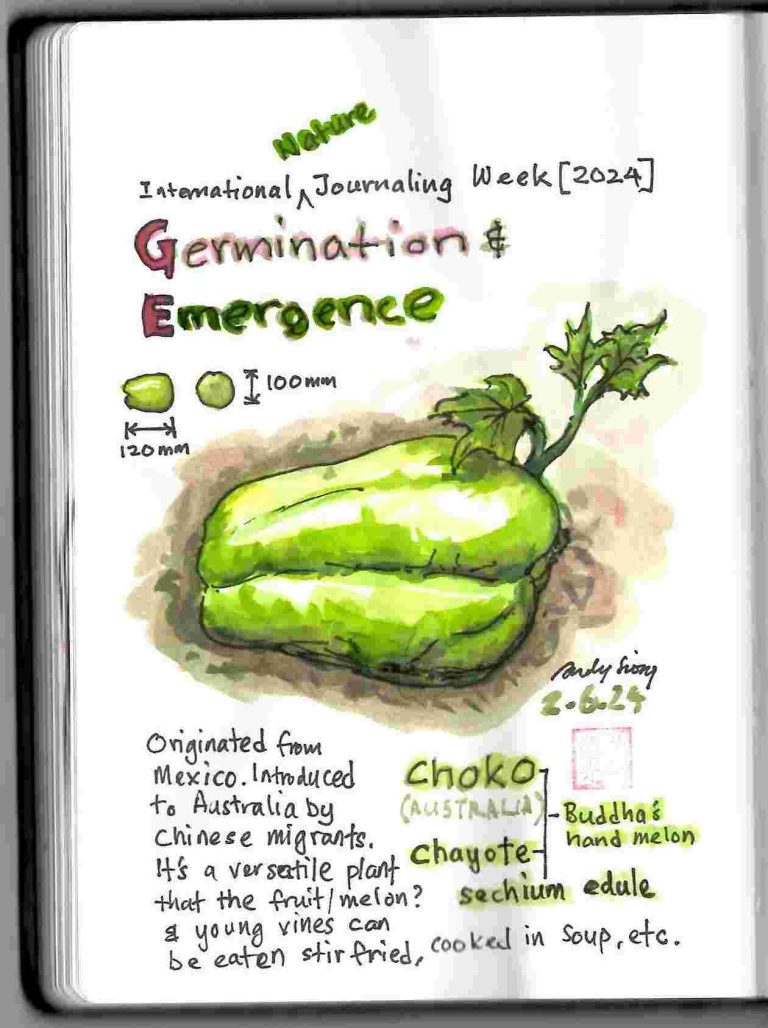 Nature
International ^ Journaling Week [2024]
Germination &
Emergence
100mm
120mm
2.6.24
Originated from
Mexico. Introduced
to Australia by
Chinese migrants.
It's a versatile plant
that the fruit/melon?
& young vines can
be eaten stir fried, cooked in soup, etc.
Choko
(AUSTRALIA)
Buddha's
hand melon
chayote
sechium edule